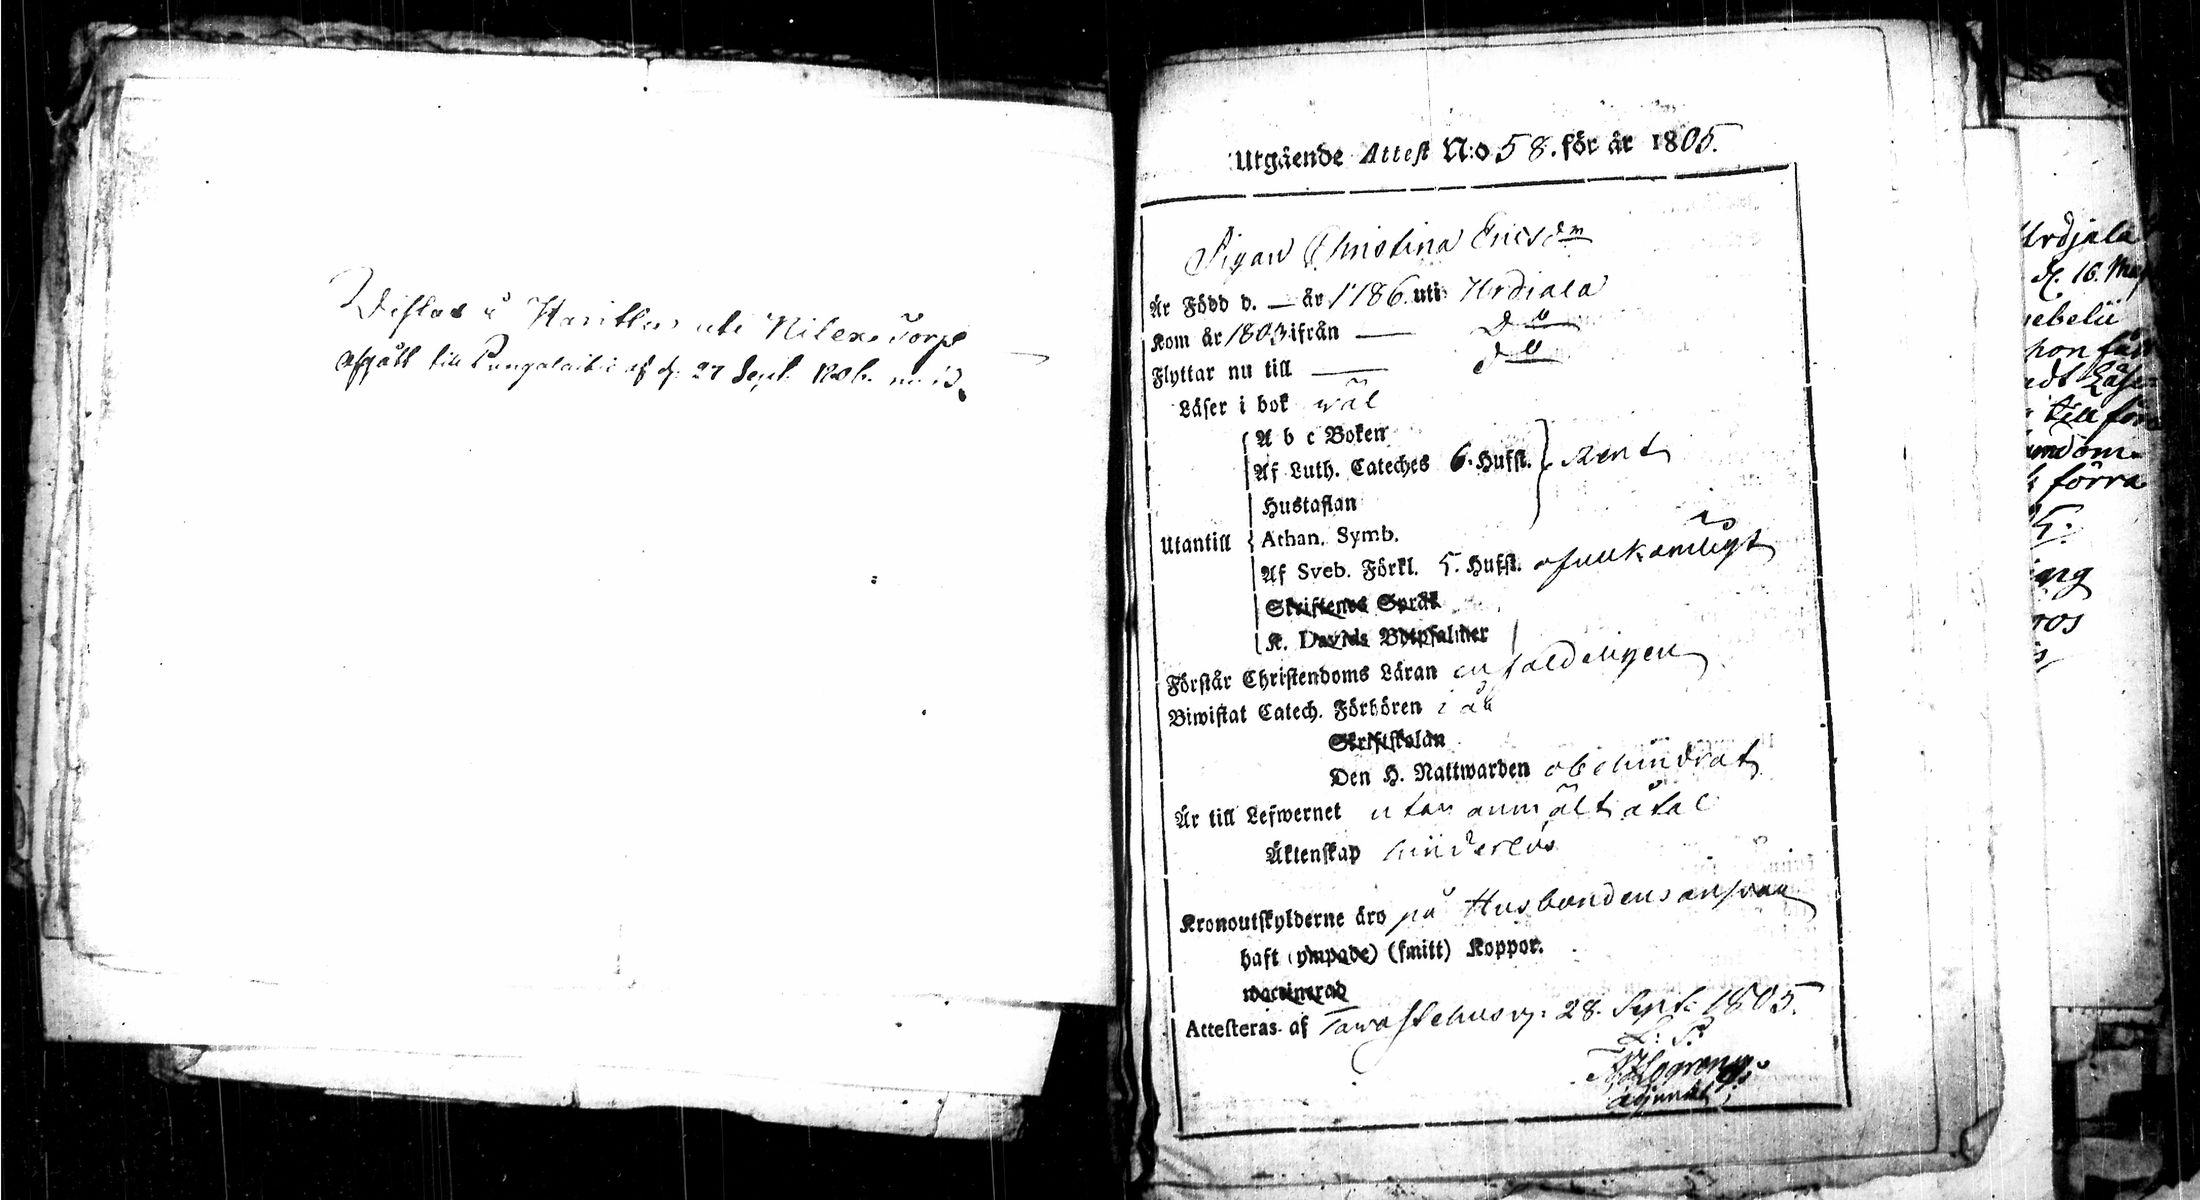 Wistas å Hanitla uti Nilexe Torp
afgått till Pungalaitio af d. 27 Sept. 1806. no 13.
Utgående Attest N:o 58. för år 1805.
Pigan Christina Ericsdr
Är Född d. — år 1786. uti Urdiala
Kom år 1803 ifrån — do
Flyttar nu till — do
Läser i bok wäl
A b c Boken
Af Luth. Cateches 6. Hufst. } Rent
Hustaflan
Utantill
Athan. Symb.
Af Sveb. Förkl. 5. Hufst. ofullkomligt
Skriftenes Språk
K. Davids Botpsalmer
Förstår Christendoms Läran enfaldeligen
Biwistat Catech. Förhören i år
Skriftskolan
Den H. Nattwarden obehindrat
Är till Lefwernet utan anmält åtal
Äktenskap hinderlös
Kronoutskylderne äro på Husbondens answar
haft (ympade) (smitt) Koppor.
waccinerad
Attesteras af Tawastehus d: 28. Sept: 1805.
Urdjala
d. 16. Maji
hon
till
förra